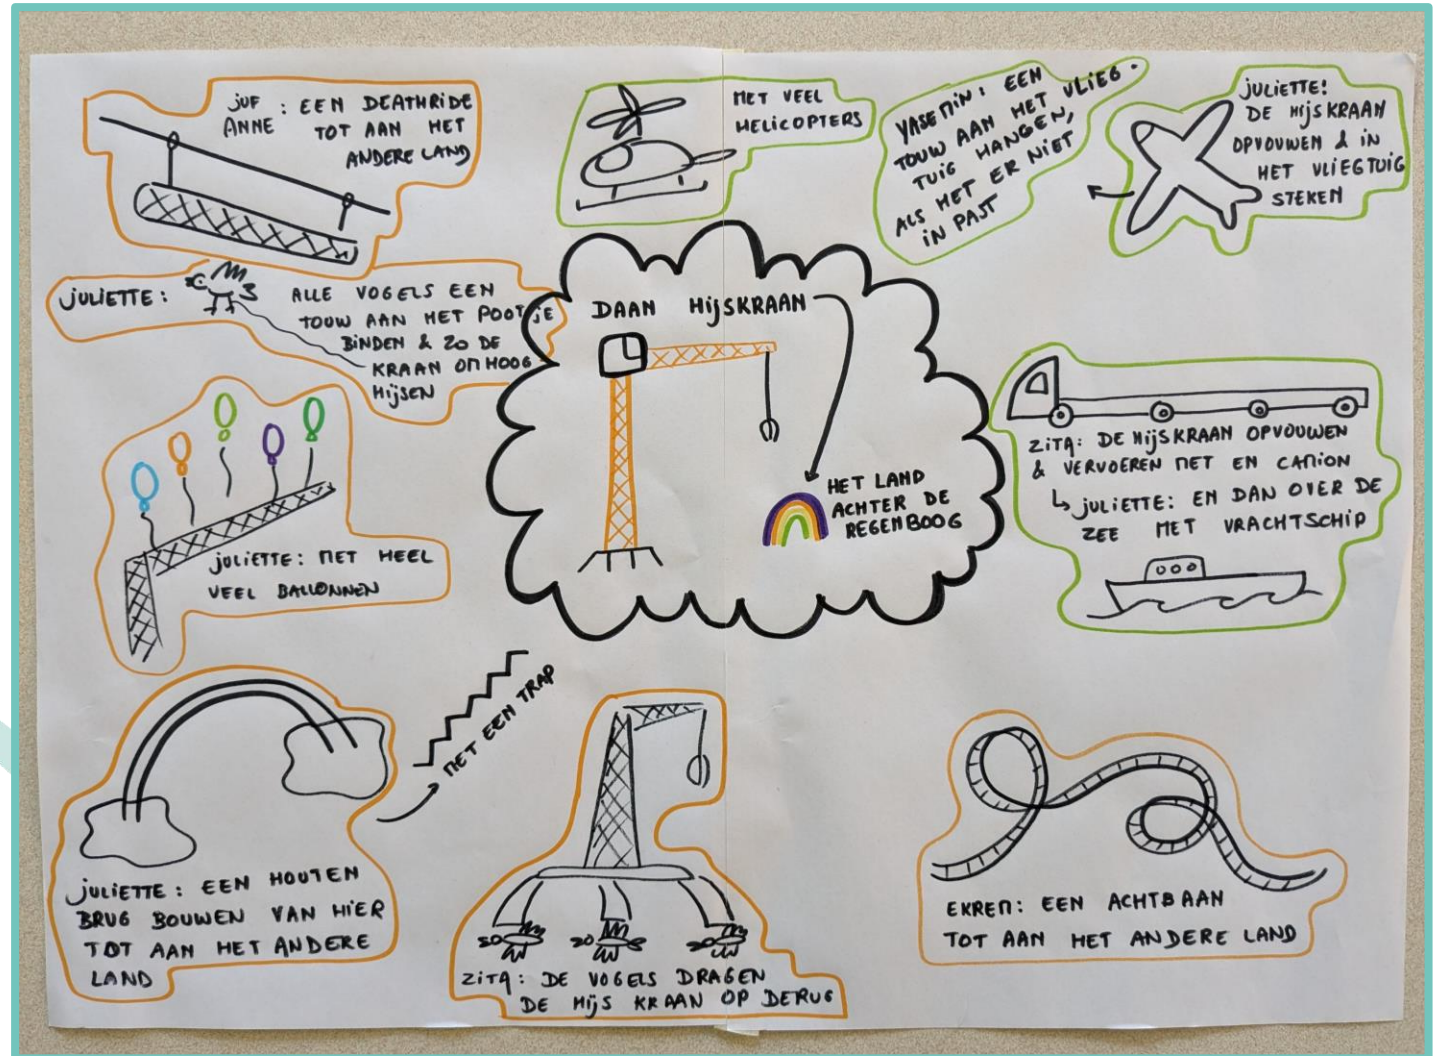 JUF ANNE : EEN DEATHRIDE
TOT AAN HET
ANDERE LAND
MET VEEL
HELICOPTERS
YASEMIN : EEN
TOUW AAN HET VLIEG-
TUIG HANGEN,
ALS HET ER NIET
IN PAST
JULIETTE:
DE HIJSKRAAN
OPVOUWEN & IN
HET VLIEGTUIG
STEKEN
JULIETTE : ALLE VOGELS EEN
TOUW AAN HET POOTJE
BINDEN & ZO DE
KRAAN OMHOOG
HIJSEN
DAAN HIJSKRAAN
HET LAND
ACHTER DE
REGENBOOG
JULIETTE: MET HEEL
VEEL BALLONNEN
ZITA: DE HIJSKRAAN OPVOUWEN
& VERVOEREN MET EN CAMION
JULIETTE: EN DAN OVER DE
ZEE MET VRACHTSCHIP
MET EEN TRAP
JULIETTE : EEN HOUTEN
BRUG BOUWEN VAN HIER
TOT AAN HET ANDERE
LAND
ZITA: DE VOGELS DRAGEN
DE HIJS KRAAN OP DERUG
EKREM: EEN ACHTBAAN
TOT AAN HET ANDERE LAND